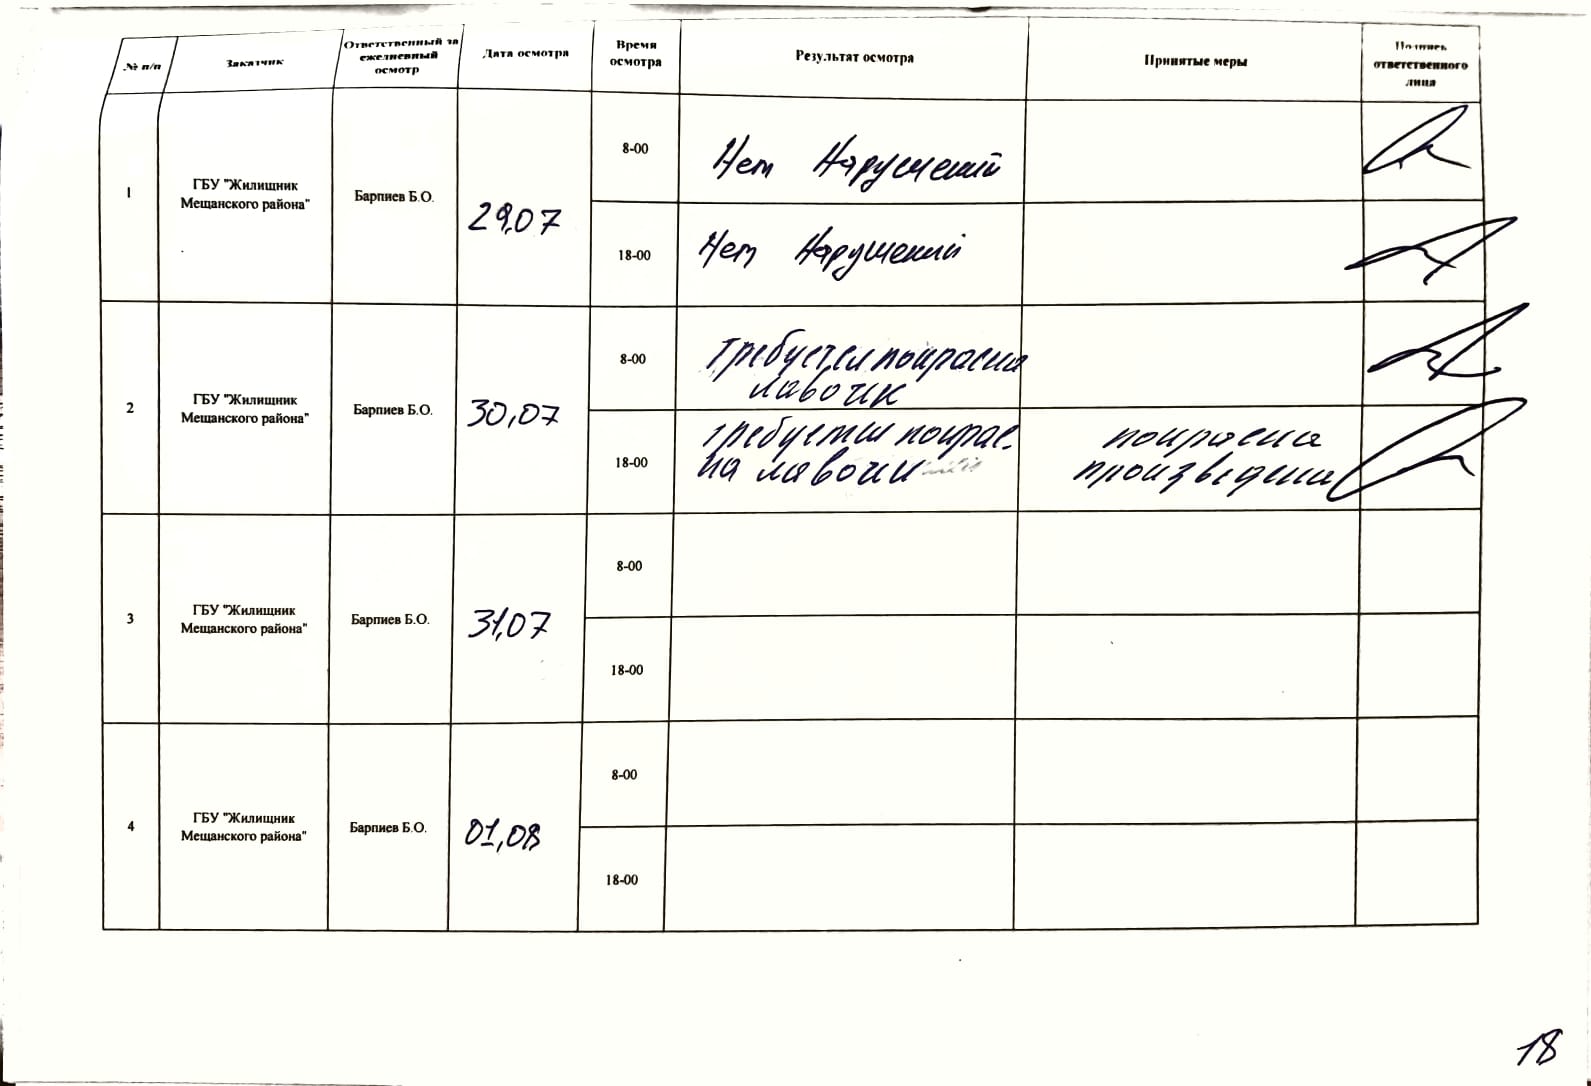 № п/п Заказчик Ответственный за ежедневный осмотр Дата осмотра Время осмотра Результат осмотра Принятые меры Подпись ответственного лица
1 ГБУ "Жилищник Мещанского района" Барпиев Б.О. 29,07
8-00 Нет Нарушений
18-00 Нет Нарушений
2 ГБУ "Жилищник Мещанского района" Барпиев Б.О. 30,07
8-00 Требуется покраска
лавочик
18-00 требуется покрас-
ка лавочки
покраска
произведена
3 ГБУ "Жилищник Мещанского района" Барпиев Б.О. 31,07
8-00
18-00
4 ГБУ "Жилищник Мещанского района" Барпиев Б.О. 01,08
8-00
18-00
18